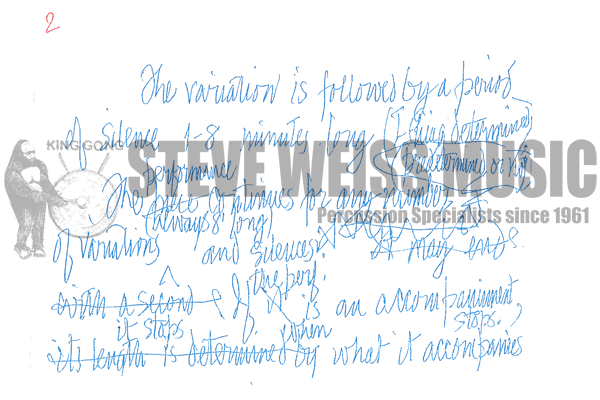 2
The variation is followed by a period
of silence 1-8 minutes long (I Ching determined,
predetermined or not)
KING GONG
STEVE WEISS MUSIC
Percussion Specialists since 1961
performance
The piece continues for any number
(always 8' long)
of variations and silences. It may end
the perf.
with a second If it is an accompaniment,
it stops when stops.
its length is determined by what it accompanies